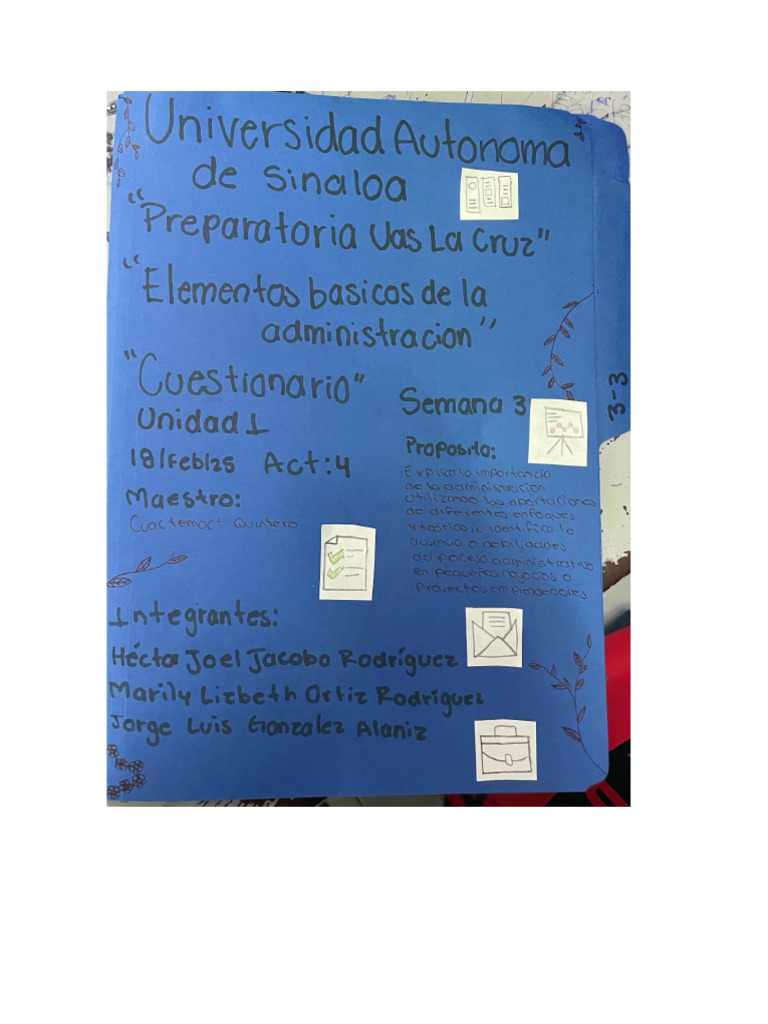 Universidad Autonoma
de Sinaloa
"Preparatoria Uas La Cruz"
"Elementos basicos de la
administracion"
"Cuestionario"
Unidad 1
Semana 3
3-3
18/Feb/25 Act:4
Maestro:
Cuactemoct Quintero
Proposito:
Explica la importancia
de la administracion
utilizando las aportaciones
de diferentes enfoques
y teorias, e identifica la
ausencia o debilidades
del proceso administrativo
en pequeños negocios o
Proyectos emprendedores
Integrantes:
Héctor Joel Jacobo Rodríguez
Marily Lizbeth Ortiz Rodríguez
Jorge Luis Gonzalez Alaniz